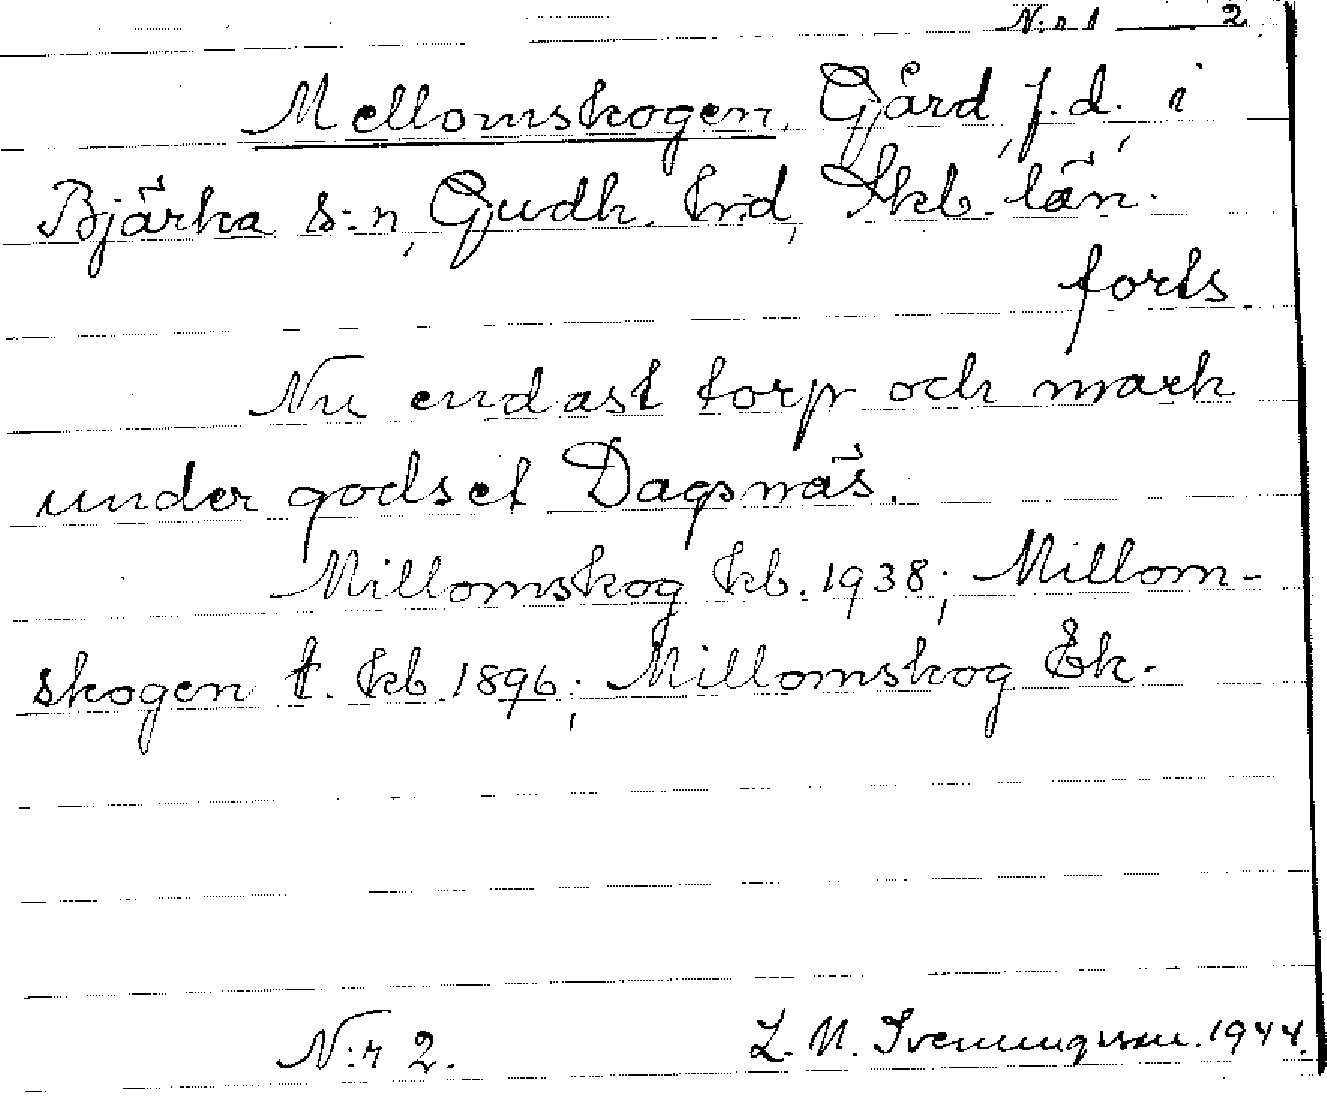 N:r 1 2
Mellomskogen, Gård, f.d., i
Bjärka s:n, Gudh. hrd, Skb. län.
forts.
Nu endast torp och mark
under godset Dagsnäs.
Millomskog kb. 1938; Millom-
skogen t. kb. 1896; Millomskog Ek.
N:r 2. L. M. Svenungsson. 1944.